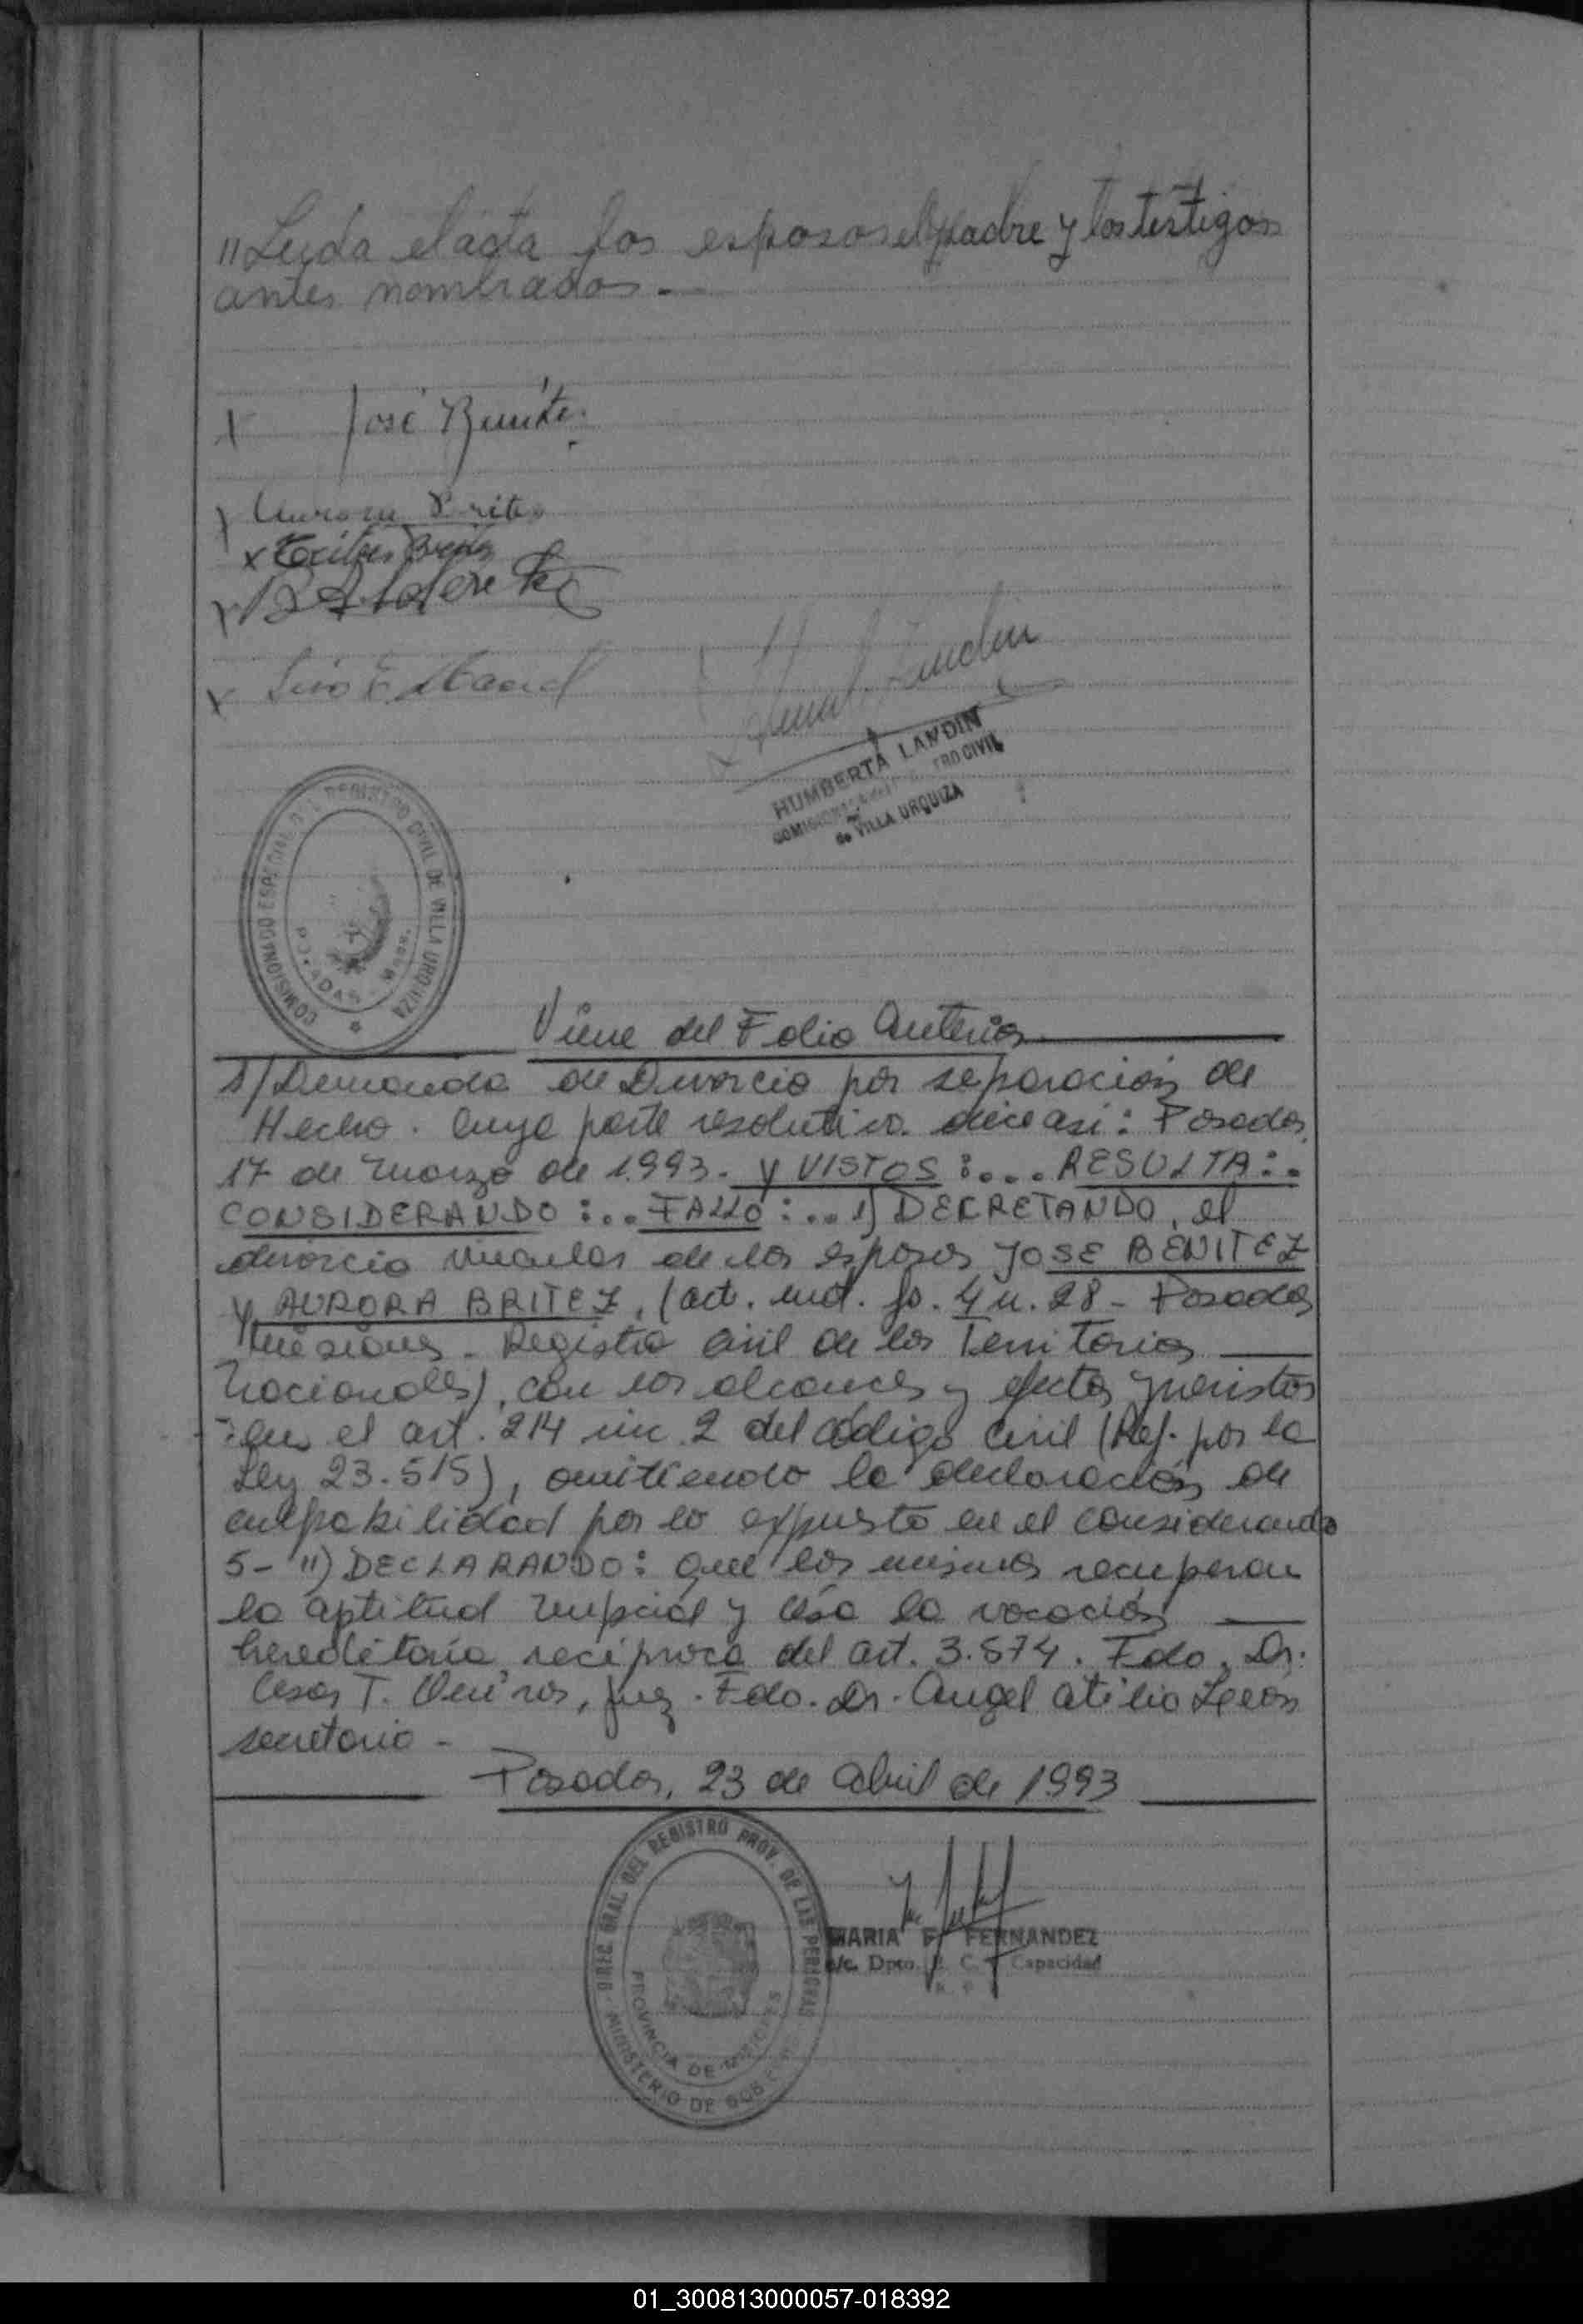 "Leida el acta los esposos el padre y los testigos
antes nombrados.-
x José Benite.
x Aurora Brites
x
x
x
HUMBERTA LANDIN
COMISIONADA REGISTRO CIVIL
de VILLA URQUIZA
COMISIONADO ESPECIAL DEL REGISTRO CIVIL DE VILLA URQUIZA
POSADAS - Mnes.
Viene del Folio Anterior
s/Demanda de Divorcio por separación de
Hecho. Cuya parte resolutiva dice asi: Posadas,
17 de Marzo de 1.993. y VISTOS:.... RESULTA:.
CONSIDERANDO:.. FALLO:... 1) DECRETANDO, el
divorcio vincular de los esposos JOSE BENITEZ
y AURORA BRITEZ, (act. mat. fo. 4 n. 28 - Posadas
Misiones - Registro Civil de los Territorios
Nacionales), con los alcances y efectos previstos
en el art. 214 inc. 2 del código Civil (Ref. por la
Ley 23.515), omitiendo la declaración de
culpabilidad por lo expuesto en el considerando
5- II) DECLARANDO: que los mismos recuperan
la aptitud nupcial y cesa la vocación
hereditaria recíproca del art. 3.574. Fdo. Dr.
Cesar T. juez. Fdo. Dr. Angel Atilio Leon
secretario -
Posadas, 23 de Abril de 1993
DIREC. GRAL. DEL REGISTRO PROV. DE LAS PERSONAS
PROVINCIA DE MISIONES
MINISTERIO DE GOBIERNO
MARIA F. FERNANDEZ
a/c. Dpto. E. C. y Capacidad
01_300813000057-018392